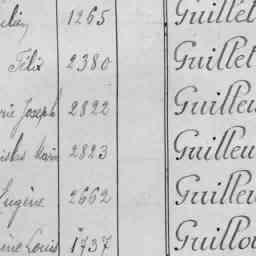 1265 Guillet
Félix 2380 Guillet
Joseph 2822 Guilleu
Marie 2823 Guilleu
Eugène 2662 Guilleu
Louis 1737 Guillou